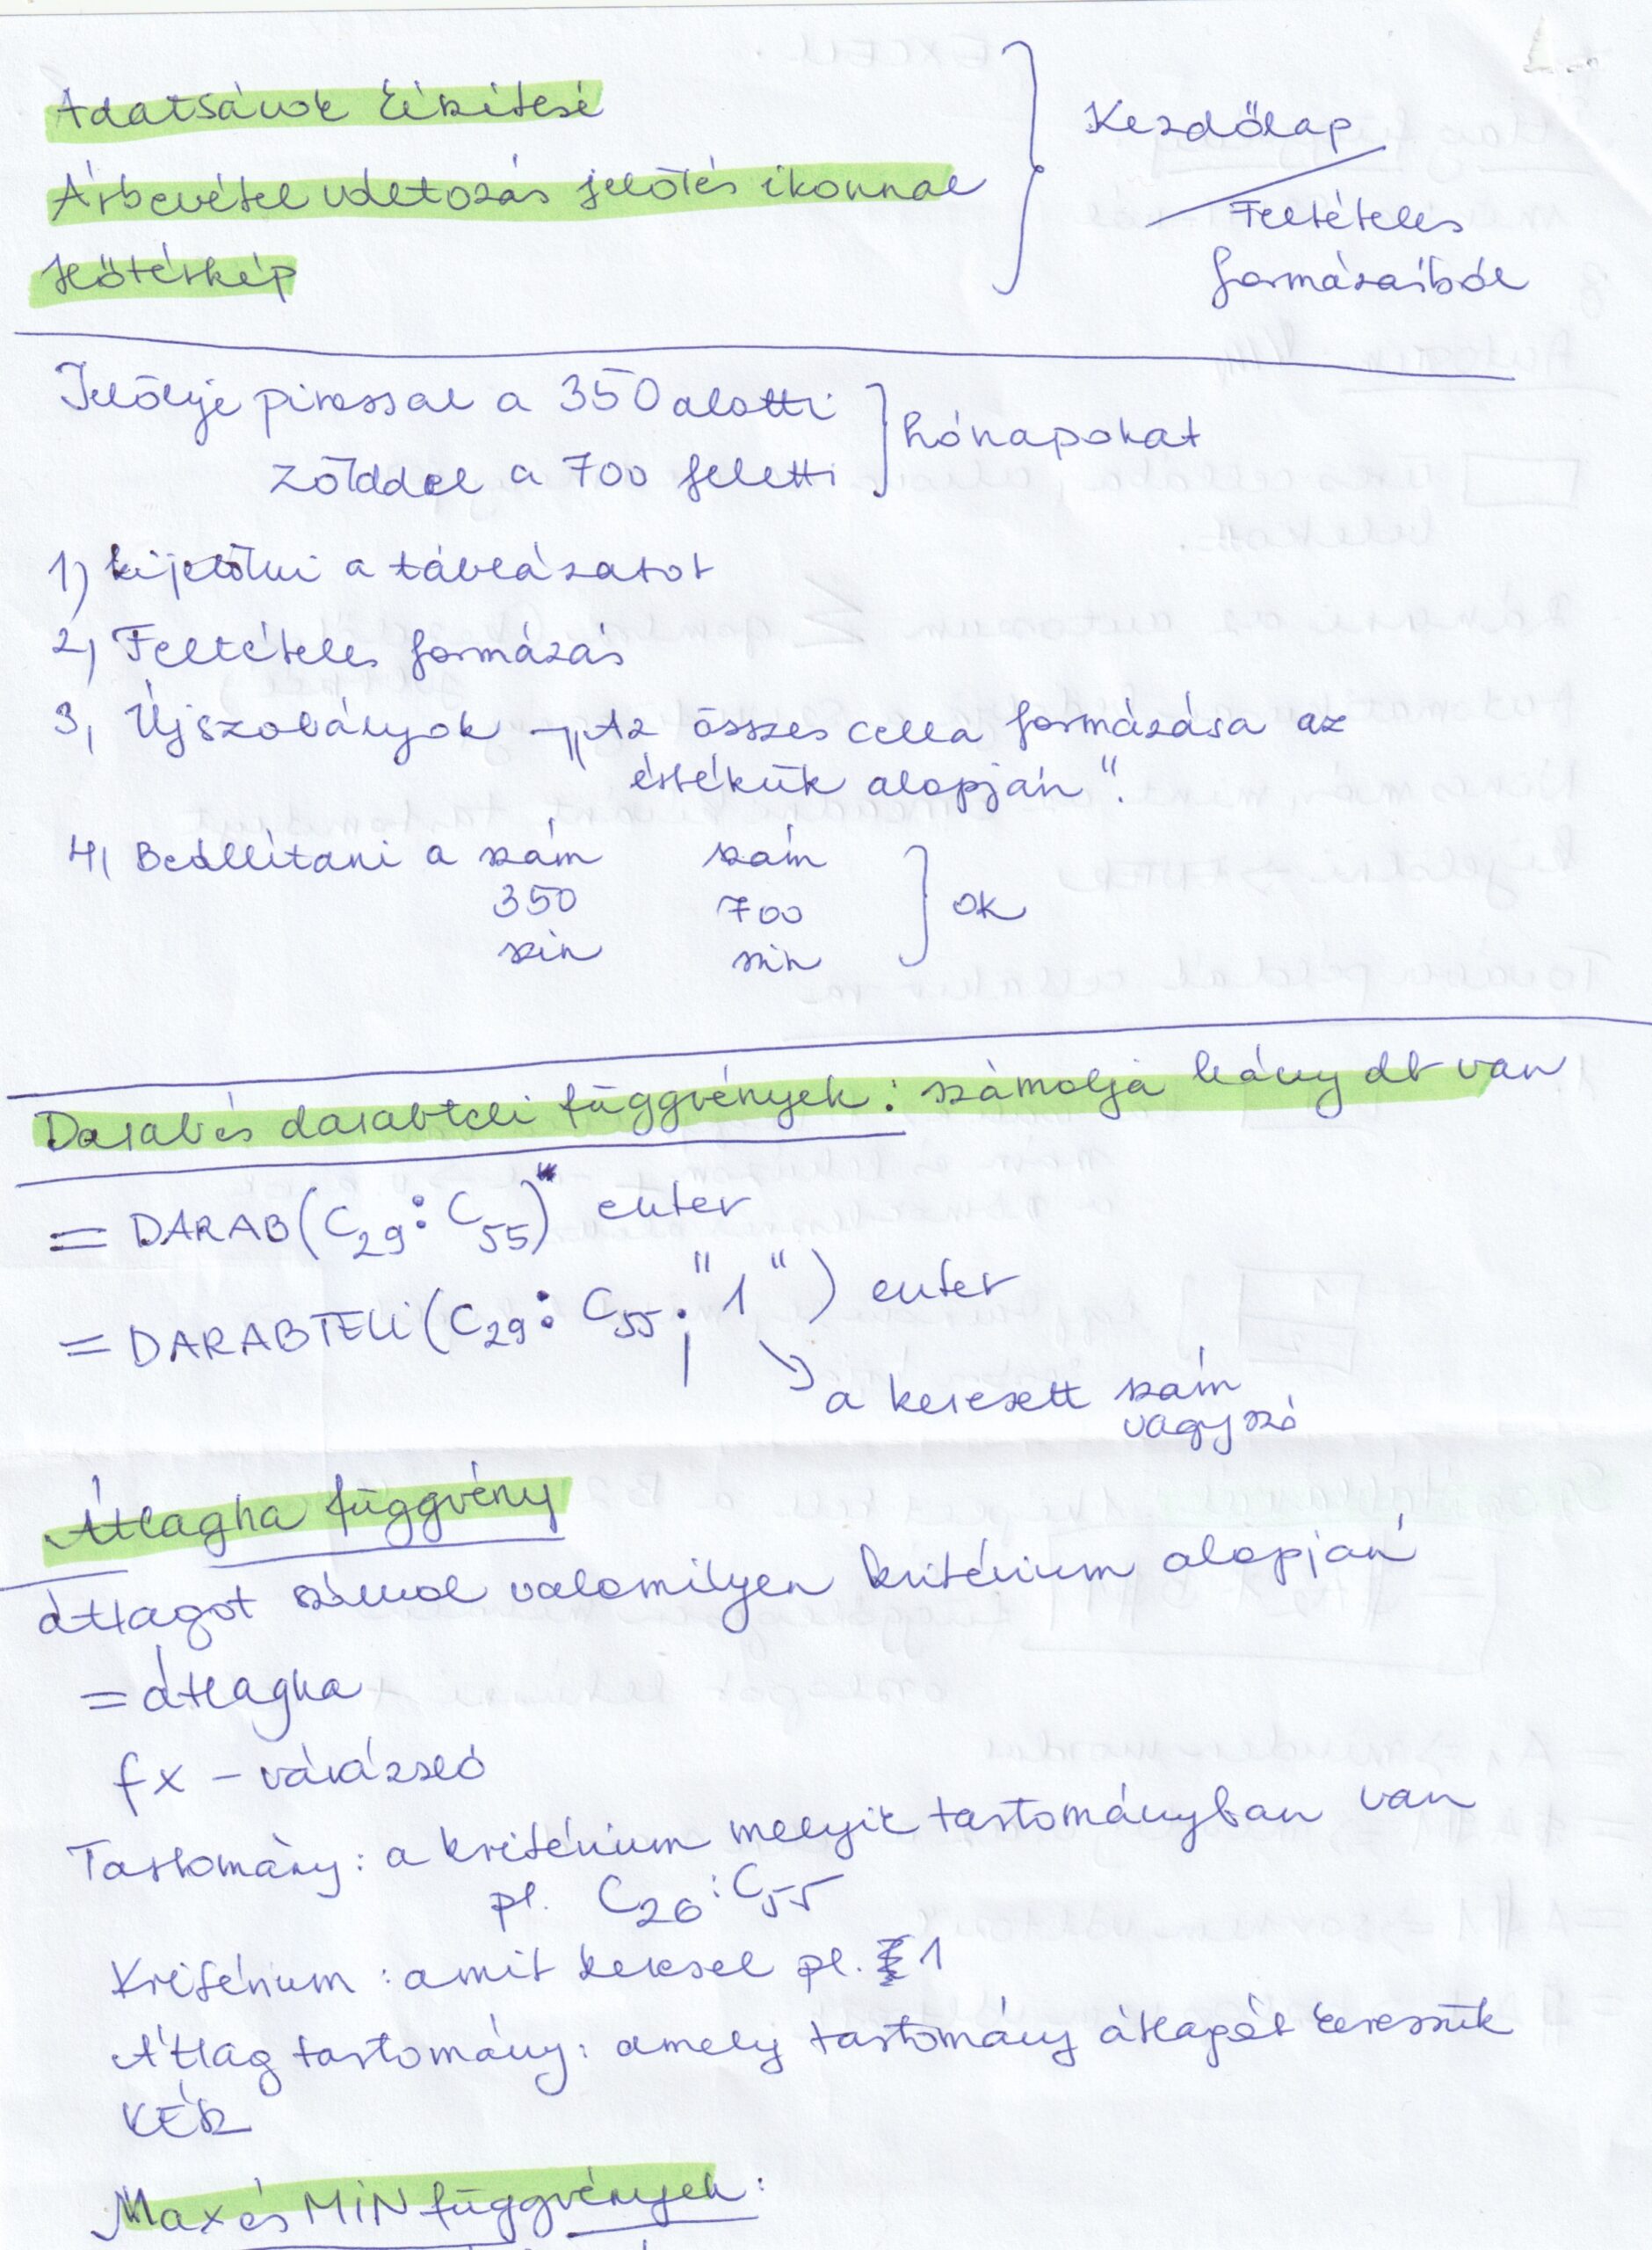 Adatsávok készítése
Árbevétel változás jelölés ikonnal
Hőtérkép
Kezdőlap
Feltételes
formázásiból
Jelölje pirossal a 350 alatti
zölddel a 700 feletti
hónapokat
1) kijelölni a táblázatot
2) Feltételes formázás
3, Újszabályok → „Az összes cella formázása az
értékük alapján".
4, Beállítani a szám szám
350 700
szín szín
ok
Darab és darabteli függvények: számolja hány db van
= DARAB(C29:C55) enter
= DARABTELI(C29:C55;"1") enter
a keresett szám
vagy szó
Átlagha függvény
átlagot számol valamilyen kritérium alapján
= átlagha
fx - varázsló
Tartomány: a kritérium melyik tartományban van
pl. C26:C55
Kritérium: amit keresel pl. 1
Átlag tartomány: amely tartomány átlagát keressük
KÉSZ
Max és MIN függvények: